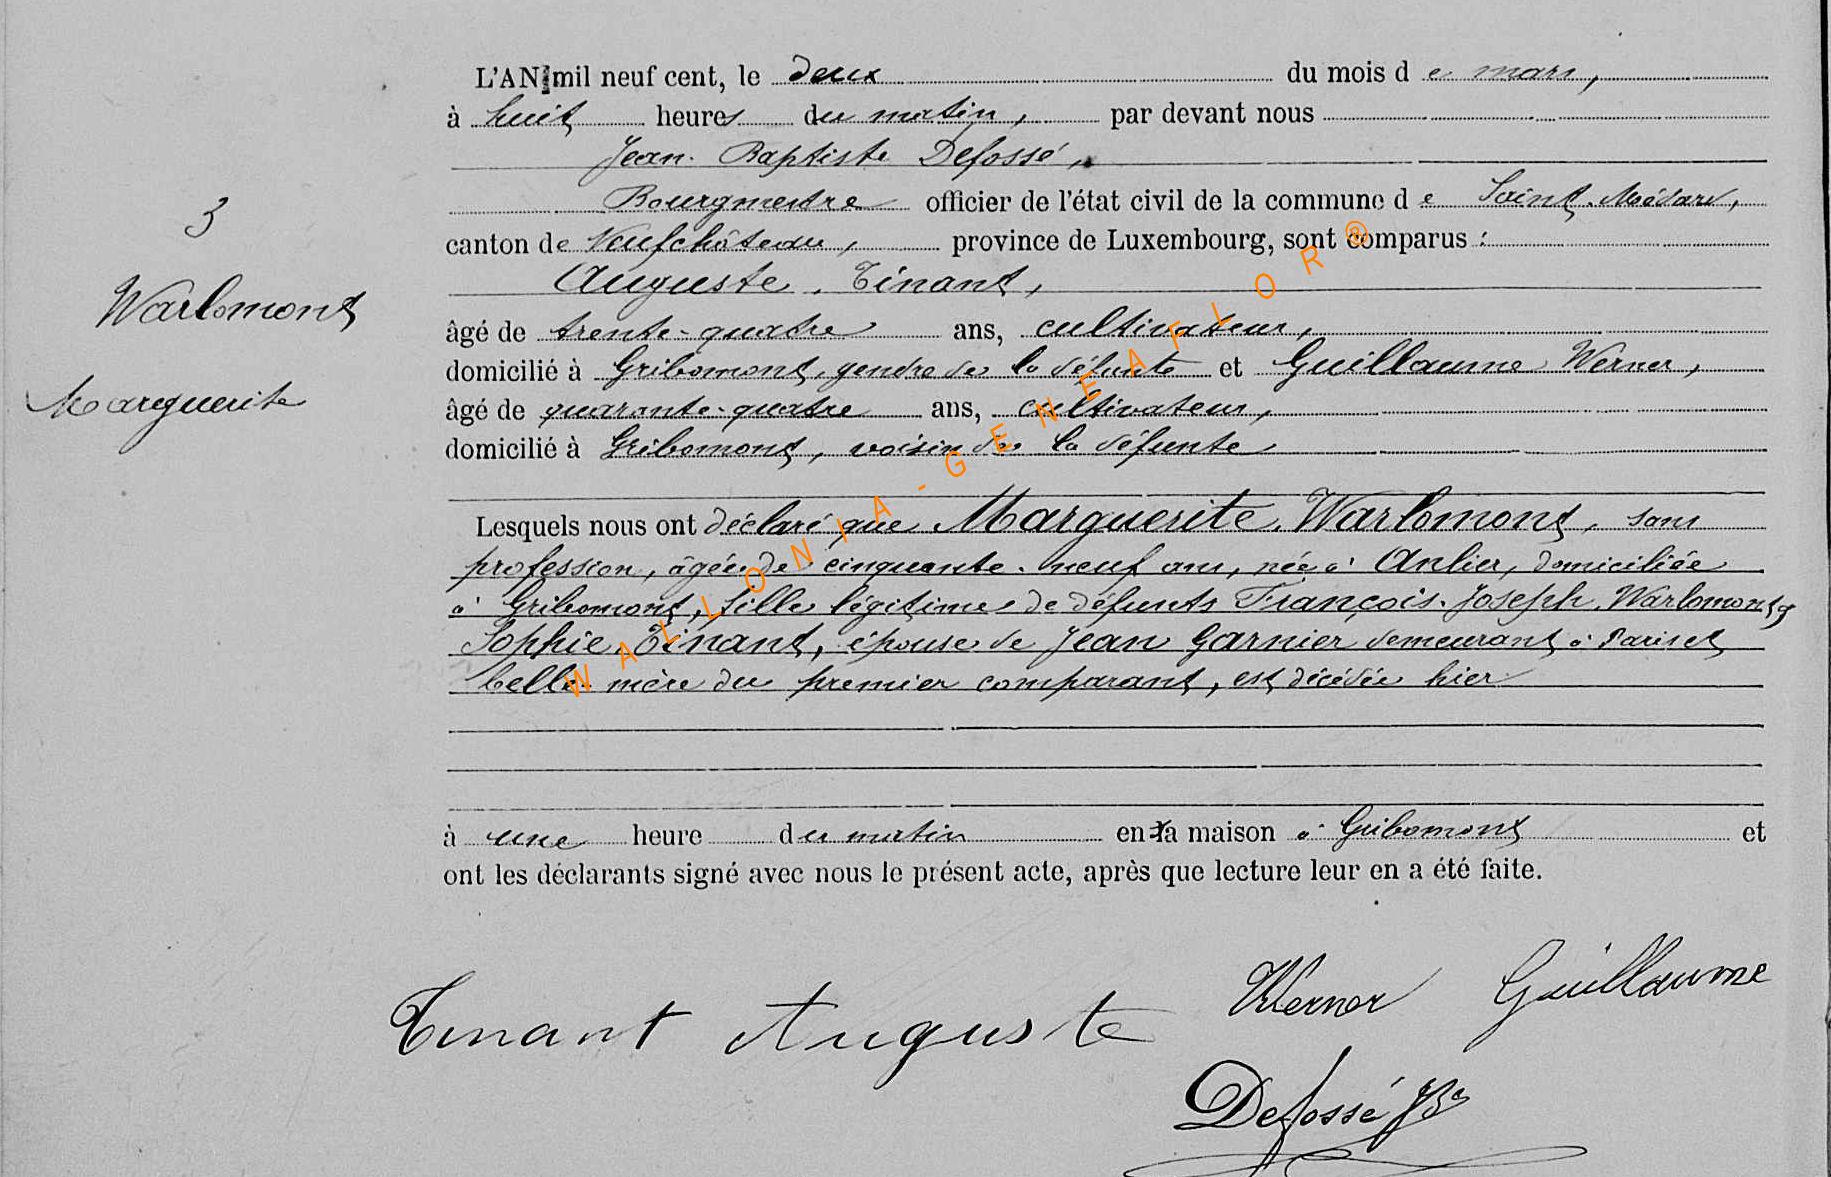 L'AN mil neuf cent, le deux du mois de mars,
à huit heures du matin, par devant nous
Jean-Baptiste Defossé,
Bourgmestre officier de l'état civil de la commune de Saint-Médard,
3
canton de Neufchâteau, province de Luxembourg, sont comparus :
Auguste Tinant,
Warlomont
âgé de trente-quatre ans, cultivateur,
domicilié à Gribomont, gendre de la défunte et Guillaume Werner,
Marguerite
âgé de quarante-quatre ans, cultivateur,
domicilié à Gribomont, voisin de la défunte
Lesquels nous ont déclaré que Marguerite Warlomont, sans
profession, âgée de cinquante-neuf ans, née à Anlier, domiciliée
à Gribomont, fille légitime de défunts François-Joseph Warlomont &
Sophie Tinant, épouse de Jean Garnier demeurant à Paris et
belle-mère du premier comparant, est décédée hier
à une heure du matin en la maison à Gribomont et
ont les déclarants signé avec nous le présent acte, après que lecture leur en a été faite.
Tinant Auguste
Werner Guillaume
Defossé JBe
WALLONIA-GENEAFLOR®